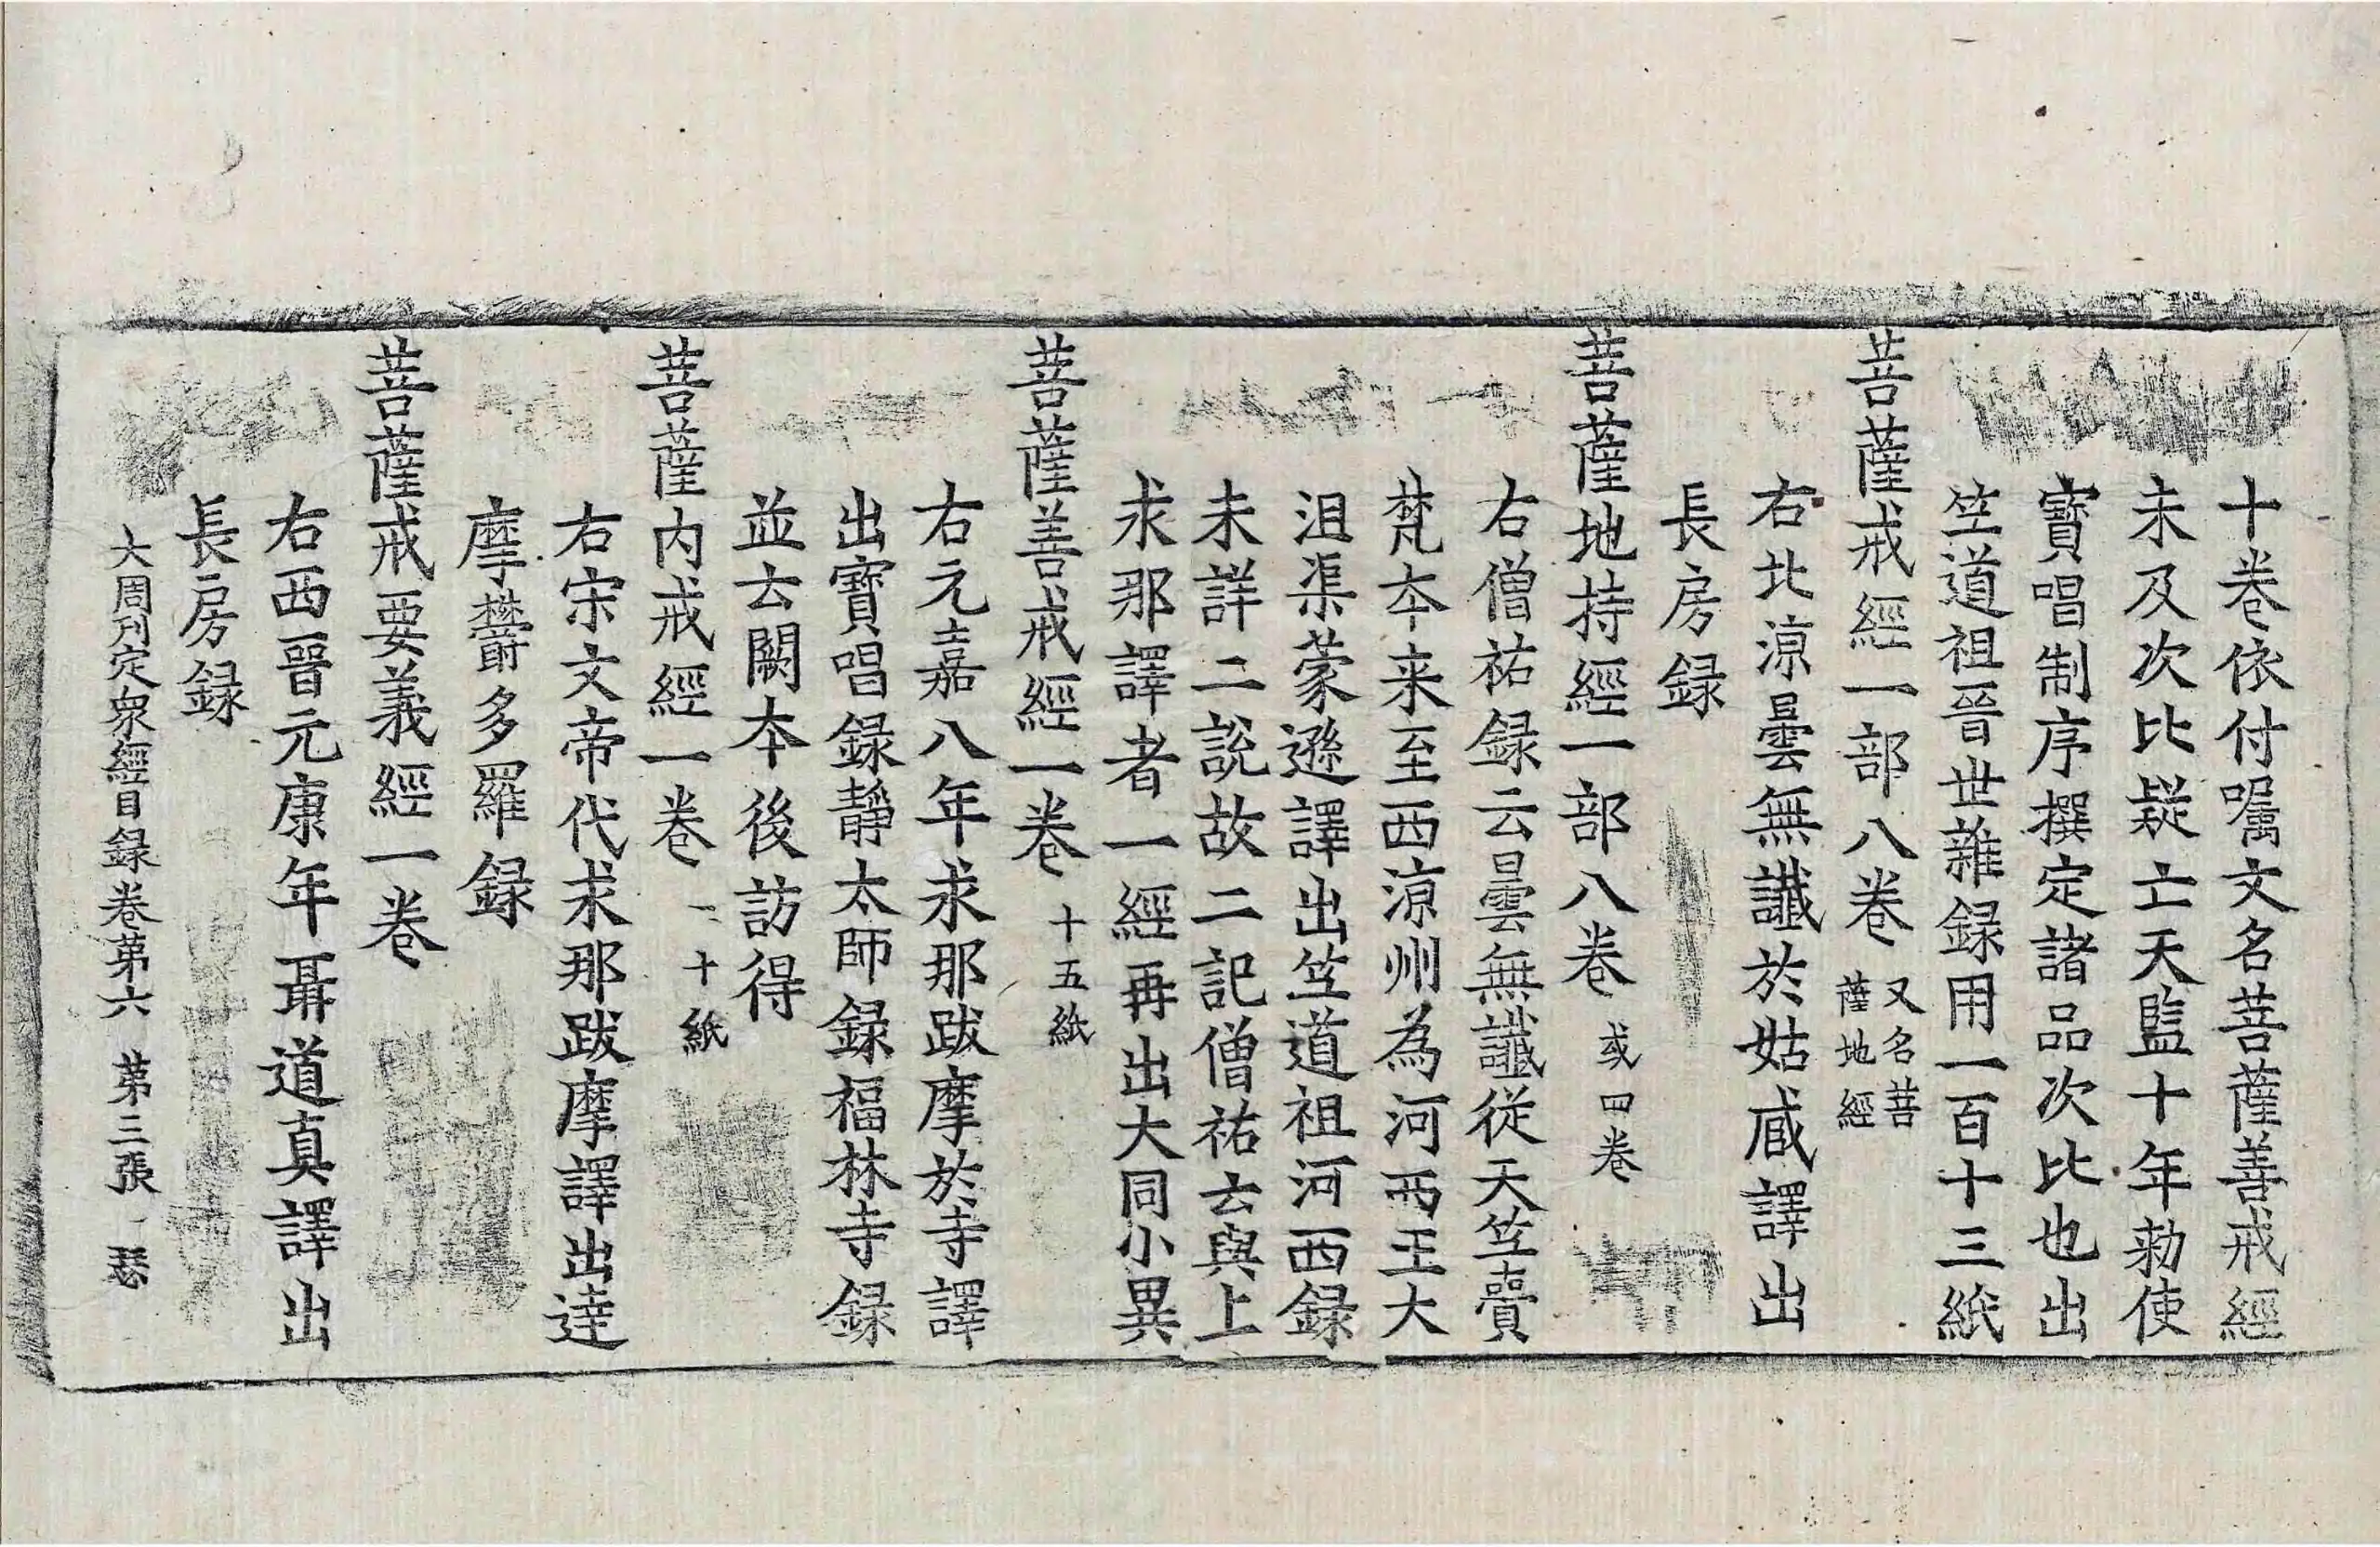 十卷依付嘱文名菩薩善戒經
未及次比疑亡天監十年勑使
寶唱制序撰定諸品次比也出
竺道祖晉世雜録用一百十三紙
菩薩戒經一部八卷 又名菩薩地經
右北涼曇無讖於姑臧譯出
長房録
菩薩地持經一部八卷 或四卷
右僧祐録云曇無讖從天竺賷
梵本来至西涼州為河西王大
沮渠蒙遜譯出竺道祖河西録
未詳二説故二記僧祐云與上
求那譯者一經再出大同小異
菩薩善戒經一卷 十五紙
右元嘉八年求那跋摩於寺譯
出寶唱録靜太師録福林寺録
並云闕本後訪得
菩薩内戒經一卷 二十紙
右宋文帝代求那跋摩譯出達
摩欝多羅録
菩薩戒要義經一卷
右西晉元康年聶道真譯出
長房録
大周刊定衆經目録卷第六 第三張